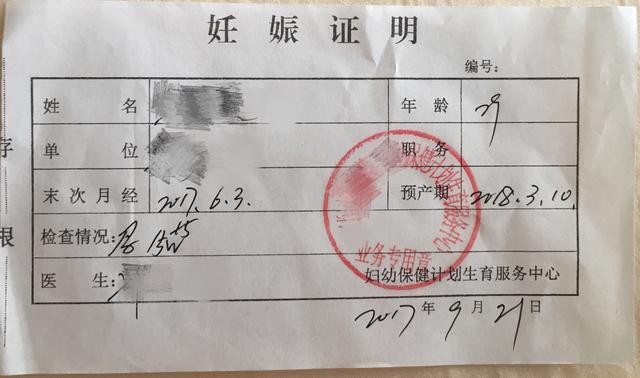 妊娠证明
编号：
姓名 年龄 29
单位 职务
末次月经 2017.6.3. 预产期 2018.3.10.
检查情况：
医生：
妇幼保健计划生育服务中心
2017年9月21日
保健计划生育服务中心
业务专用章
存
根